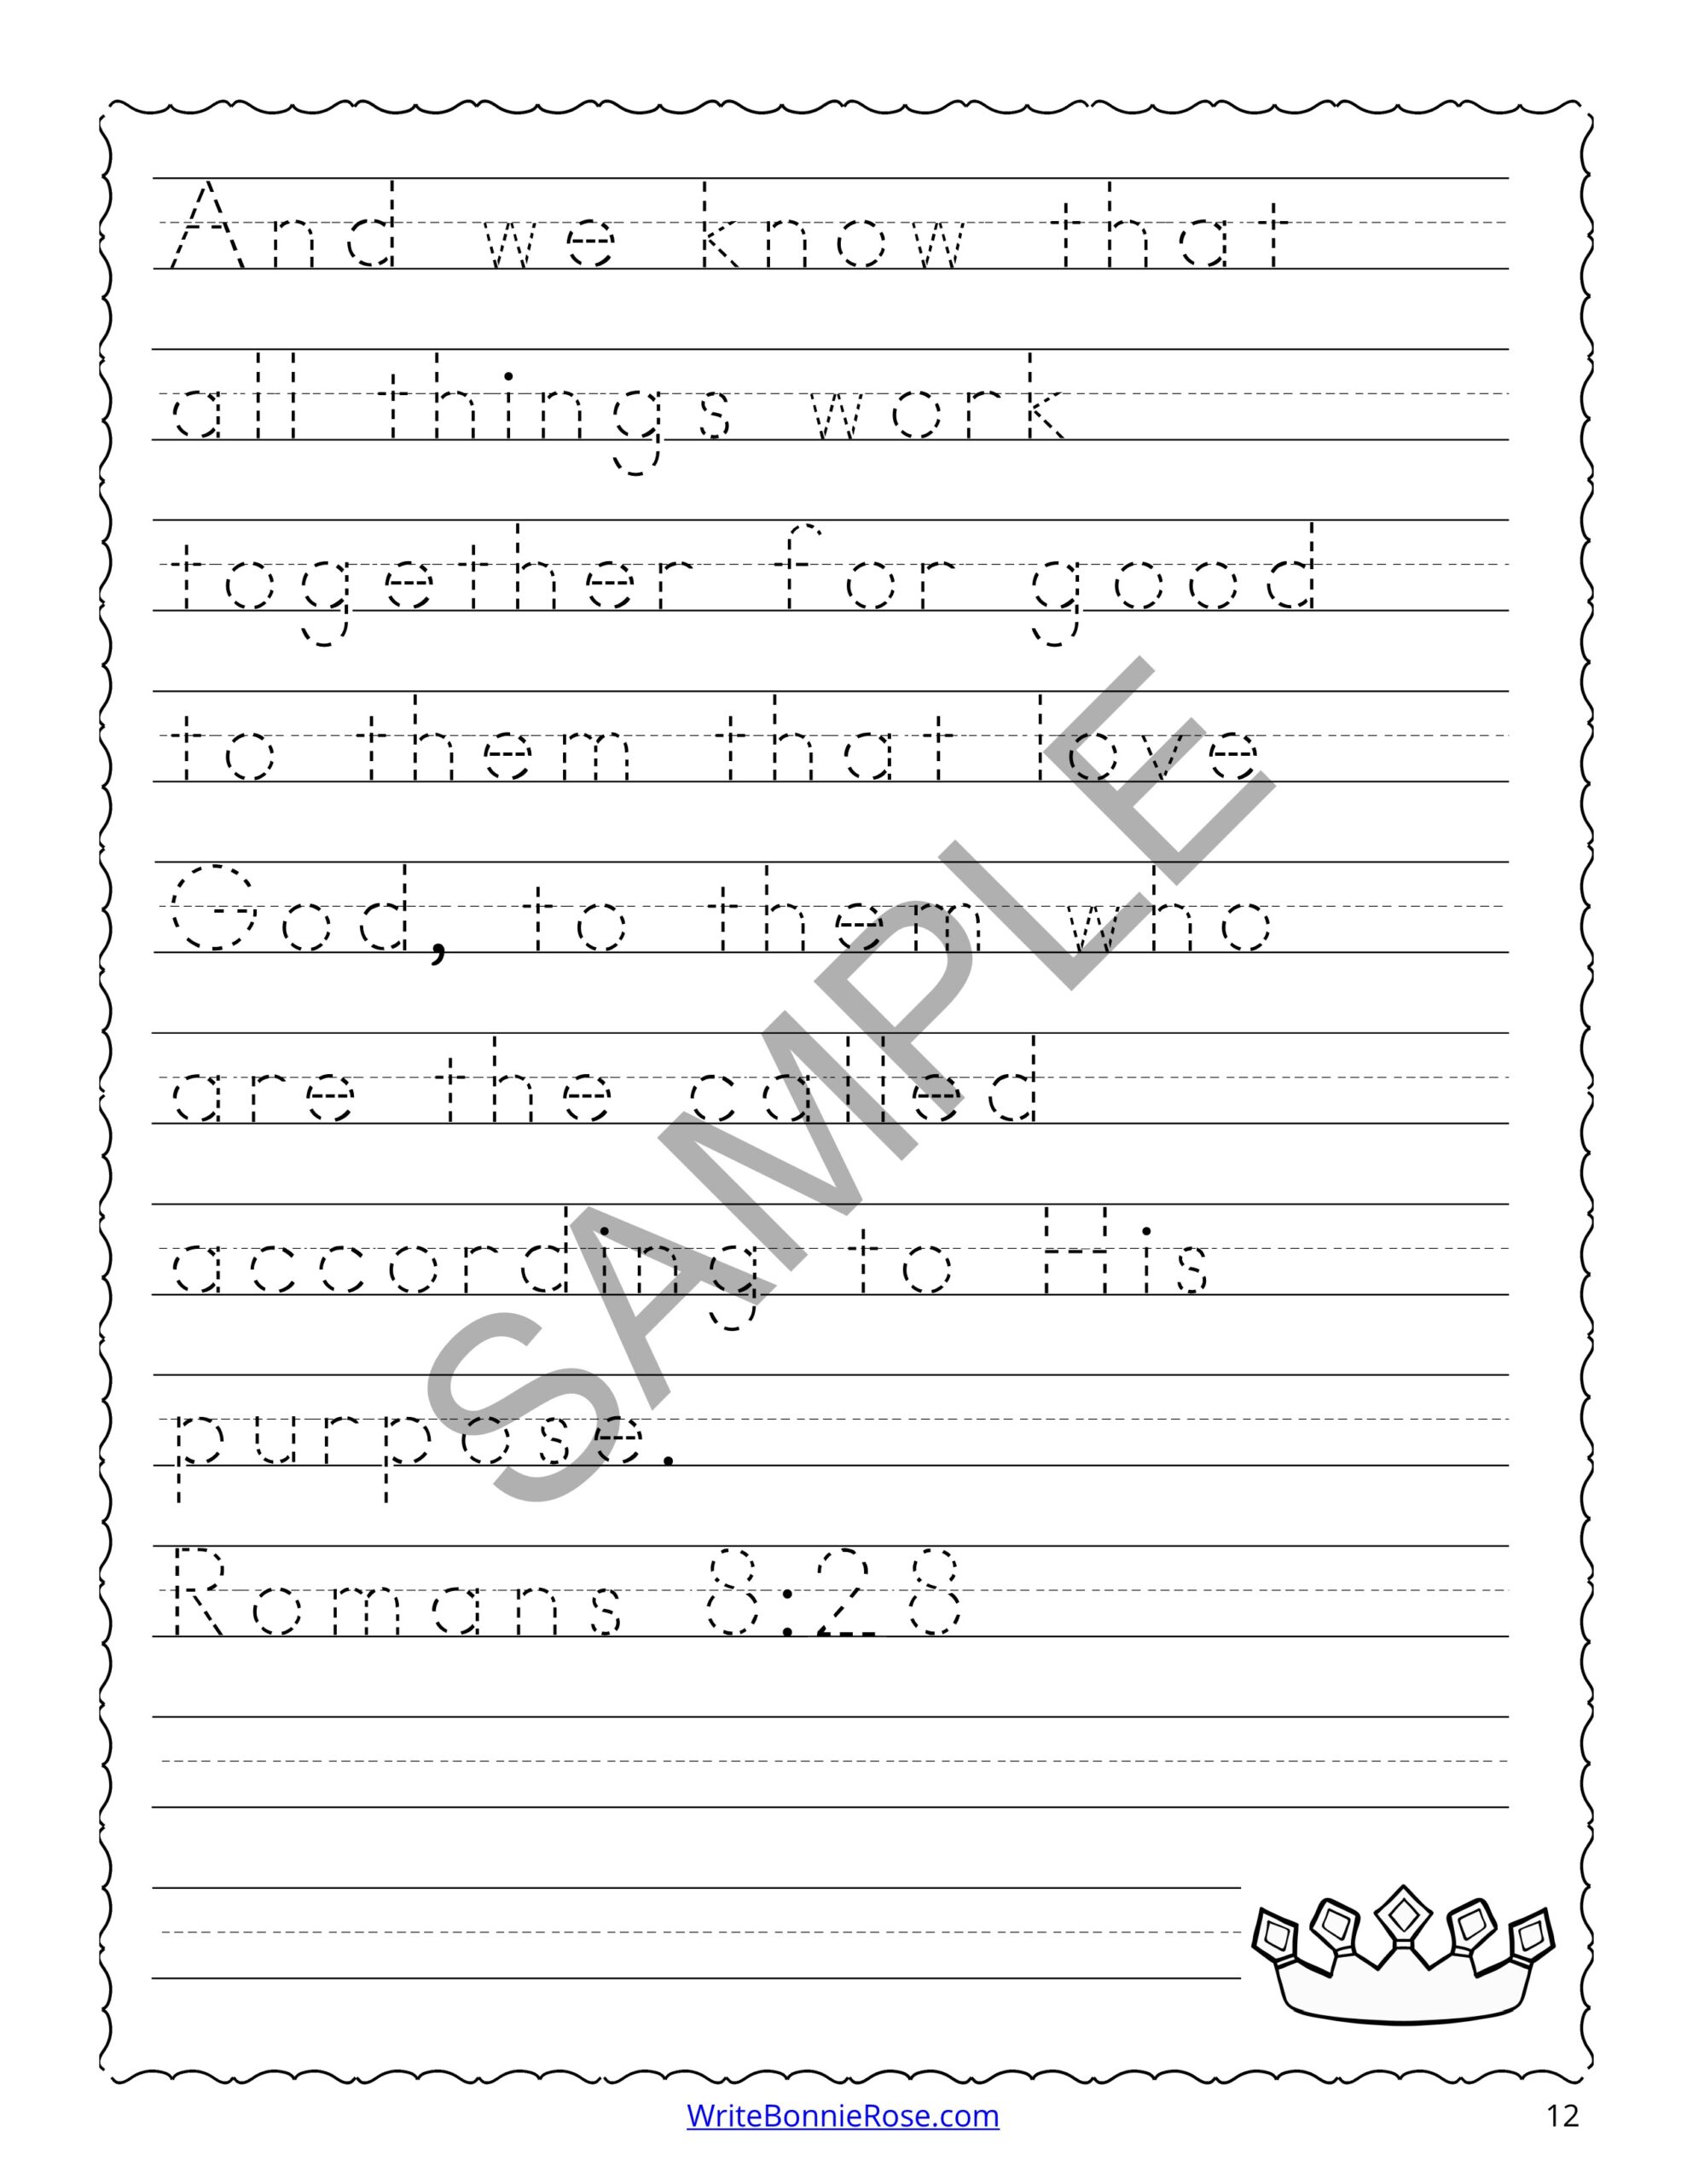 And we know that
all things work
together for good
to them that love
God, to them who
are the called
according to His
purpose.
Romans 8:28
SAMPLE
WriteBonnieRose.com
12